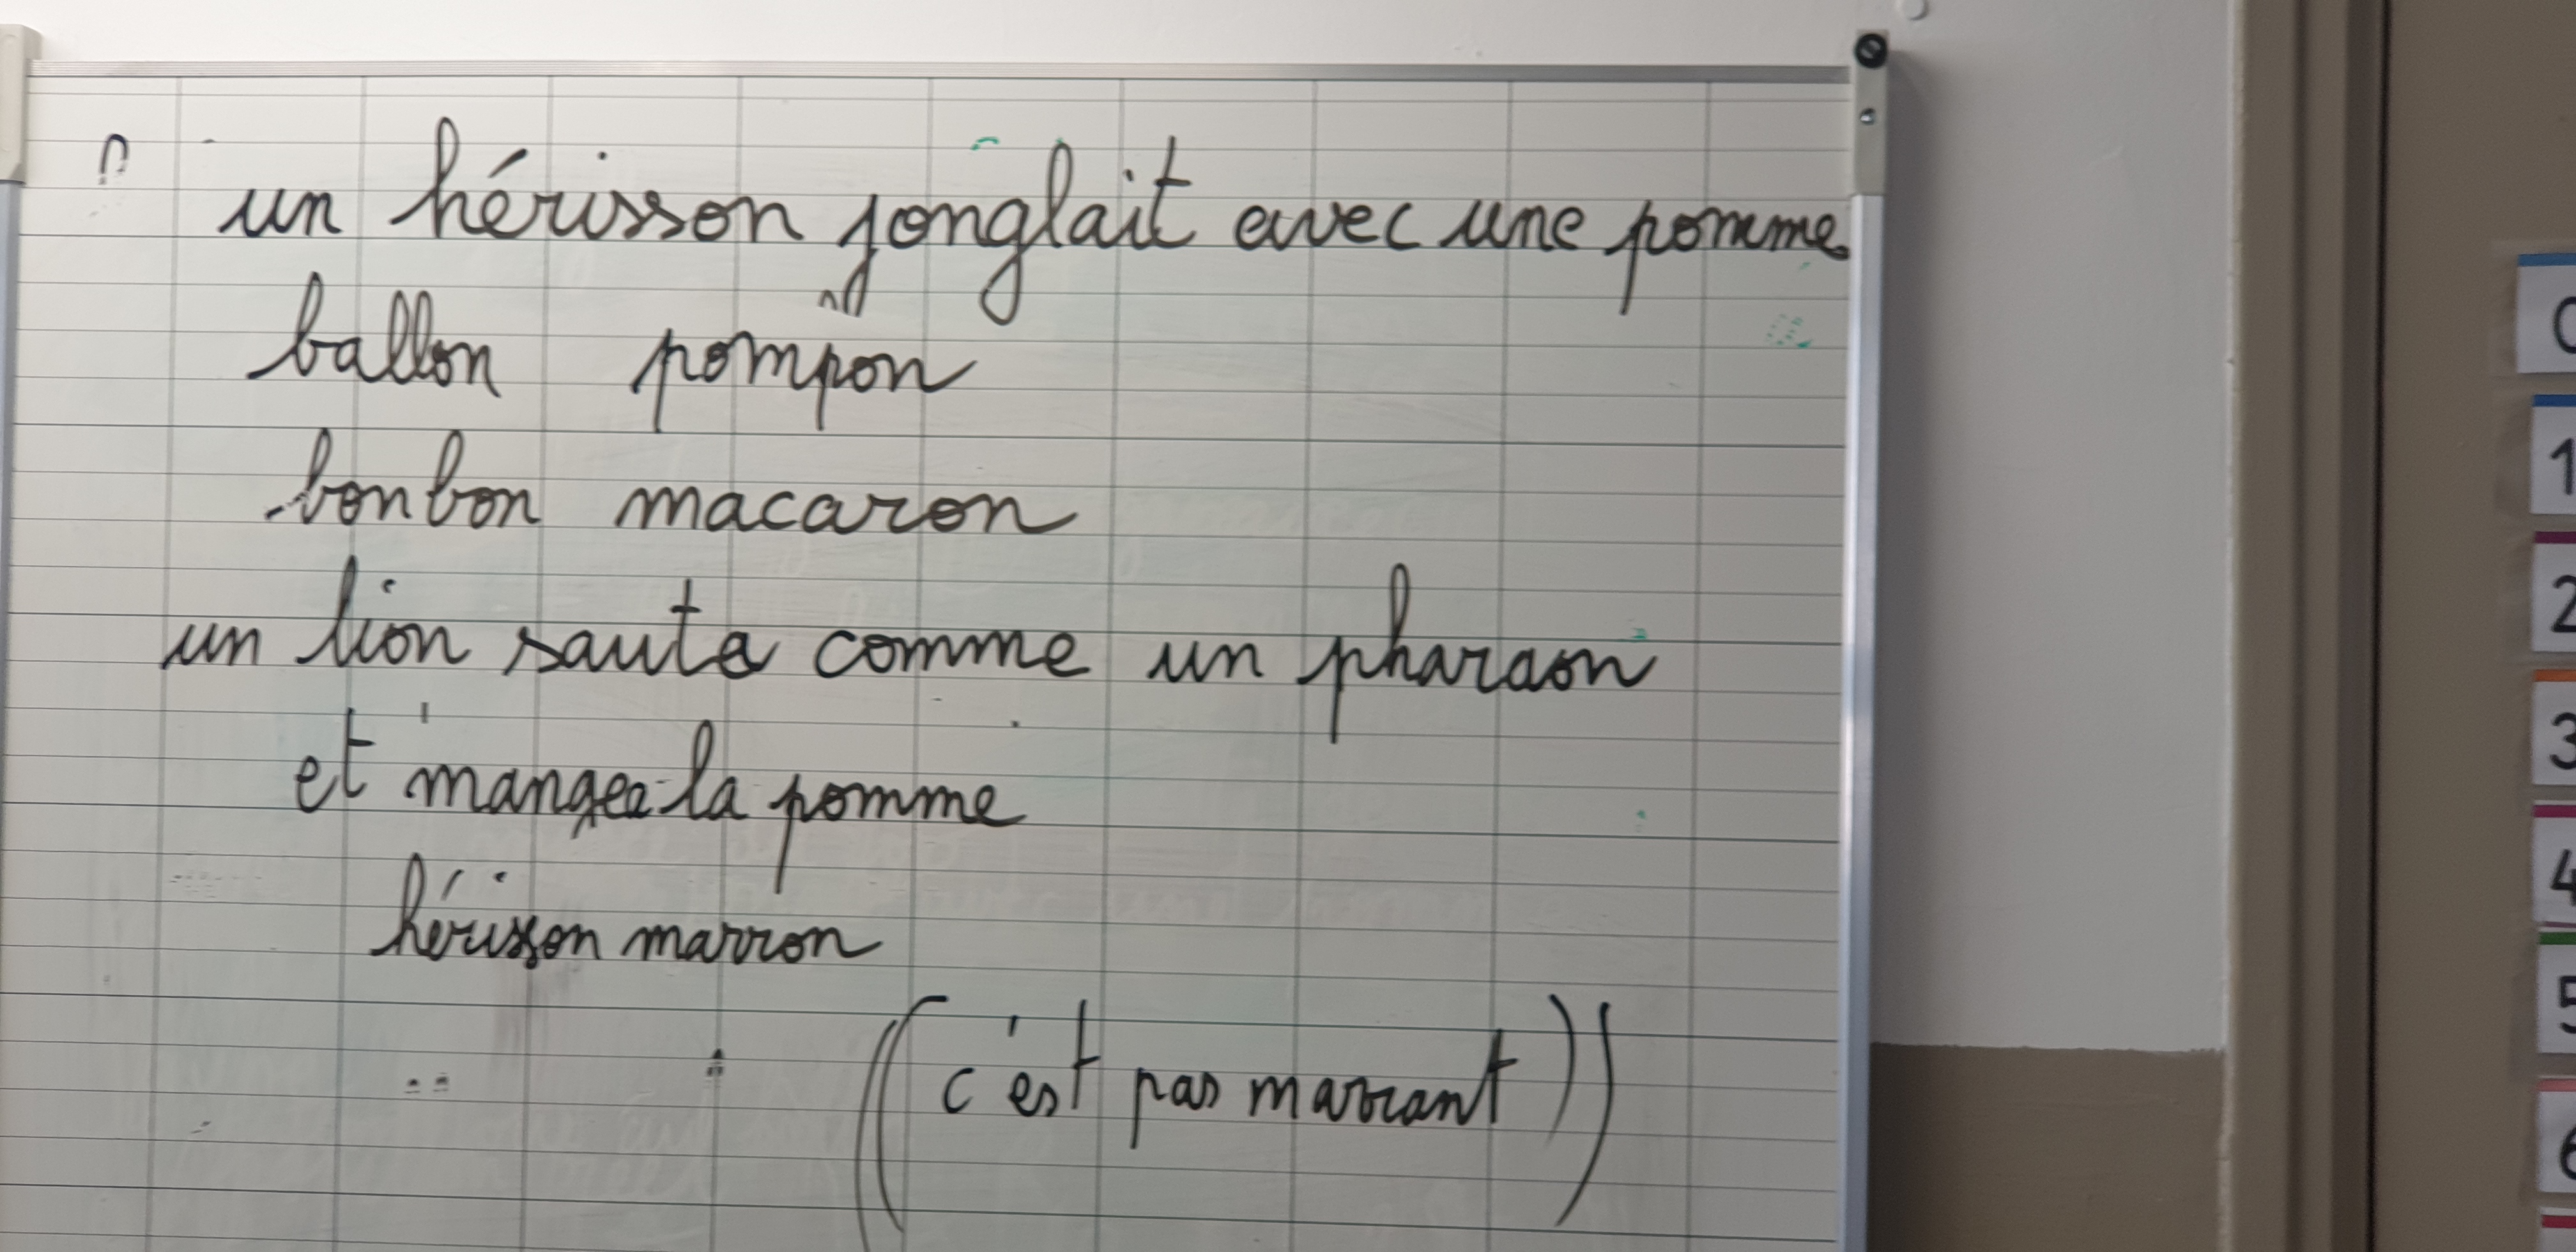 un hérisson jonglait avec une pomme
ballon pompon
bonbon macaron
un lion sauta comme un pharaon
et mangea la pomme
hérisson marron
((c'est pas marrant))
0
1
2
3
4
5
6